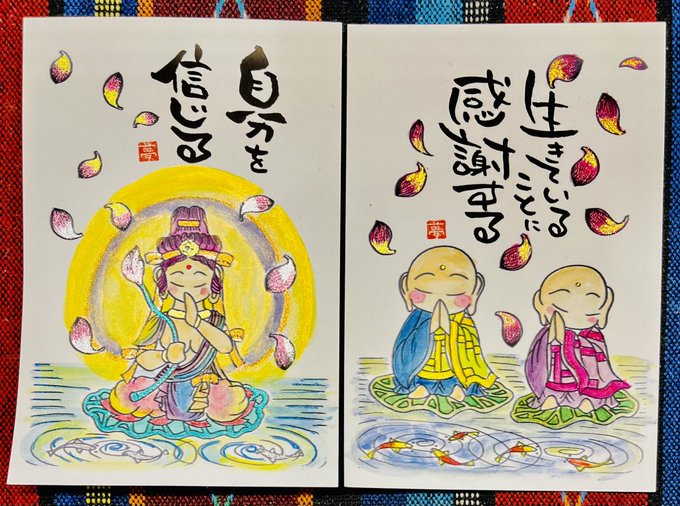 自分を
信じる
夢
生きている
ことに
感謝する
夢